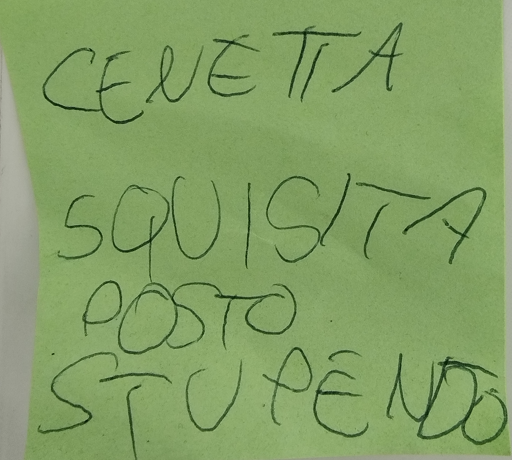 CENETTA
SQUISITA
POSTO
STUPENDO